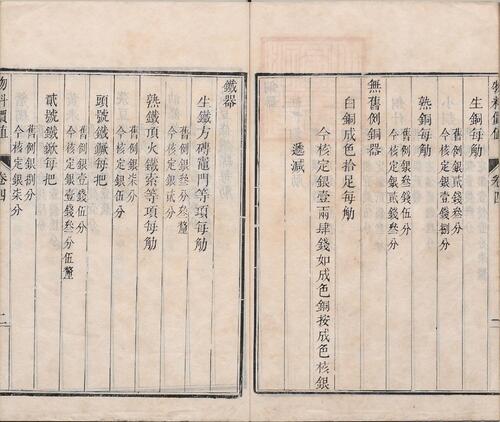 生銅每觔
舊例銀貳錢叁分
今核定銀壹錢捌分
熟銅每觔
舊例銀叁錢伍分
今核定銀貳錢叁分
無舊例銅器
白銅成色拾足每觔
今核定銀壹兩肆錢如成色銅按成色核銀
遞減
鐵器
生鐵方磚竈門等項每觔
舊例銀叁分叁釐
今核定銀貳分
熟鐵頂火鐵索等項每觔
舊例銀柒分
今核定銀伍分
頭號鐵鍬每把
舊例銀壹錢伍分
今核定銀壹錢叁分伍釐
貳號鐵鍬每把
舊例銀捌分
今核定銀柒分
物料價值
卷四
二